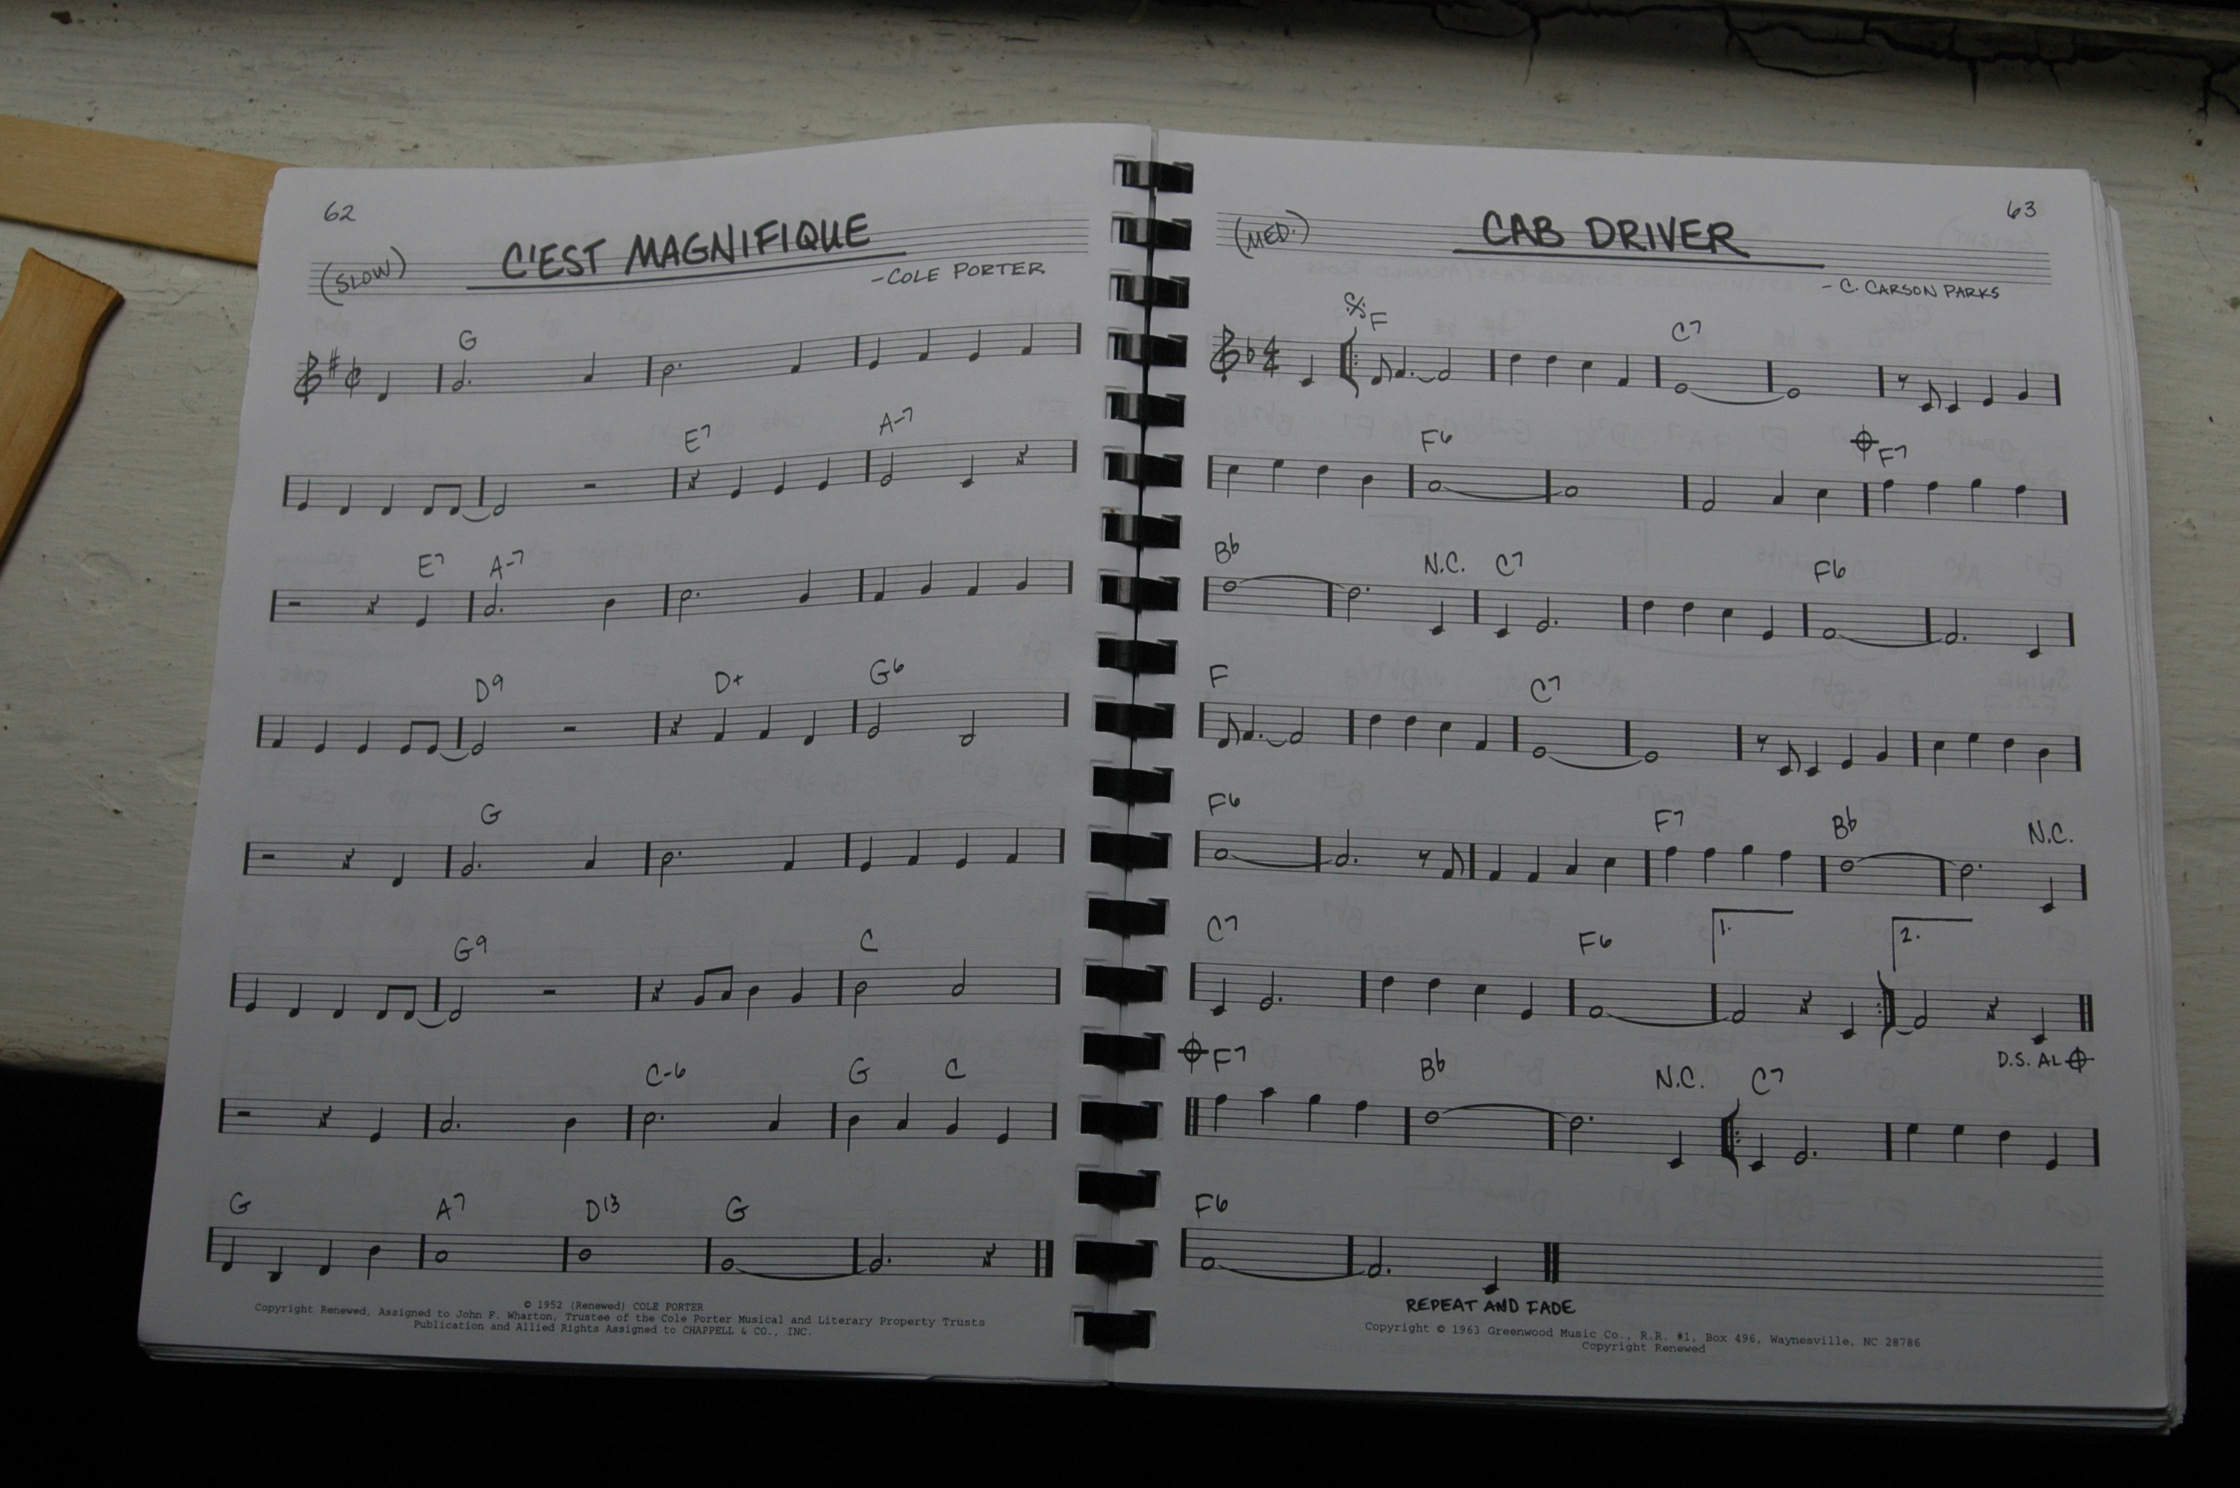 62
(SLOW)
C'EST MAGNIFIQUE
- COLE PORTER
G
E7 A-7
E7 A-7
D9 D+ G6
G
G9 C
C-6 G C
G A7 D13 G
© 1952 (Renewed) COLE PORTER
Copyright Renewed, Assigned to John F. Wharton, Trustee of the Cole Porter Musical and Literary Property Trusts
Publication and Allied Rights Assigned to CHAPPELL & CO., INC.
63
(MED.)
CAB DRIVER
- C. CARSON PARKS
F C7
F6 F7
Bb N.C. C7 F6
F C7
F6 F7 Bb N.C.
C7 F6 1. 2.
D.S. AL
F7 Bb N.C. C7
F6
REPEAT AND FADE
Copyright © 1963 Greenwood Music Co., R.R. #1, Box 496, Waynesville, NC 28786
Copyright Renewed